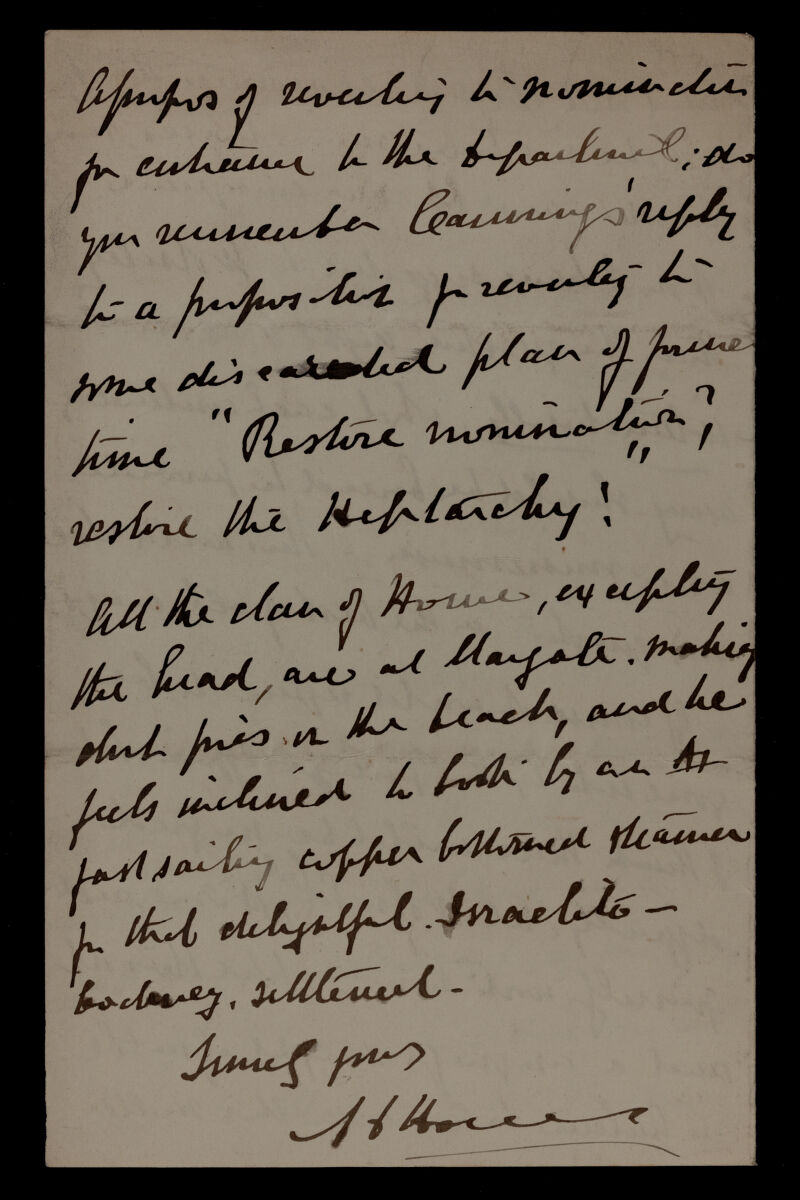 Apropos of reverting to nomination
for entrance to the Department; do
you remember Canning's reply
to a proposition for reverting to
some discarded plan of former
time "Restore nomination?
restore the Heptarchy!"
All the clan of Horne, excepting
the head, are at Margate. making
dirt pies on the beach, and he
feels inclined to book by an A1
fast sailing copper bottomed steamer
for that delightful. Israelito-
Cockney. settlement.-
Sincerely yours